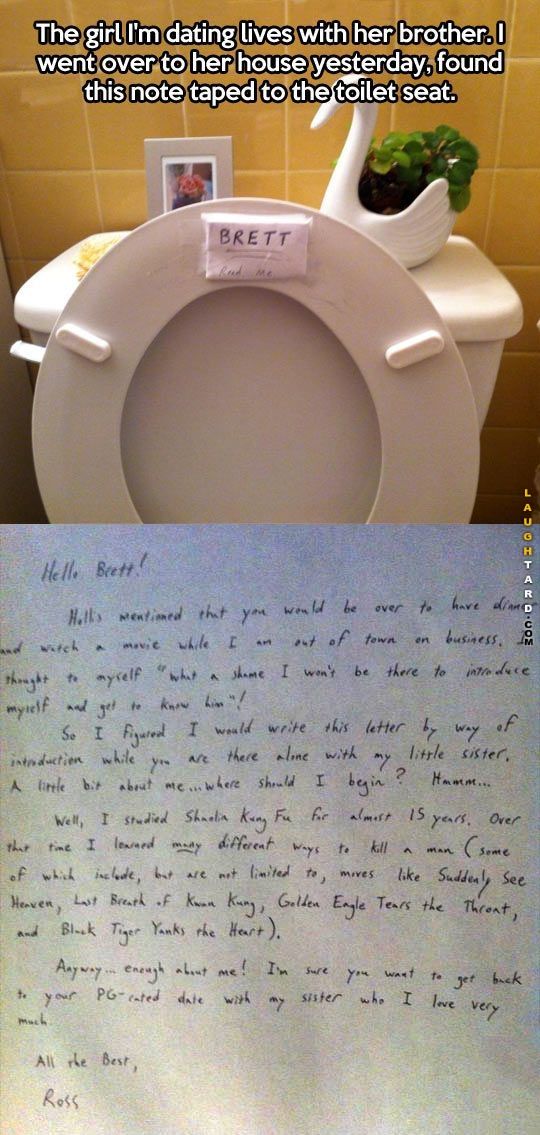 The girl I'm dating lives with her brother. I
went over to her house yesterday, found
this note taped to the toilet seat.
BRETT
Read Me
LAUGHTARD.COM
Hello Brett!
Hollis mentioned that you would be over to have dinner
and watch a movie while I am out of town on business. I
thought to myself "what a shame I won't be there to introduce
myself and get to know him"!
So I figured I would write this letter by way of
introduction while you are there alone with my little sister.
A little bit about me... where should I begin? Hmmm...
Well, I studied Shaolin Kung Fu for almost 15 years. Over
that time I learned many different ways to kill a man (some
of which include, but are not limited to, moves like Suddenly See
Heaven, Last Breath of Kwan Kung, Golden Eagle Tears the Throat,
and Black Tiger Yanks the Heart).
Anyway... enough about me! I'm sure you want to get back
to your PG-rated date with my sister who I love very
much.
All the Best,
Ross